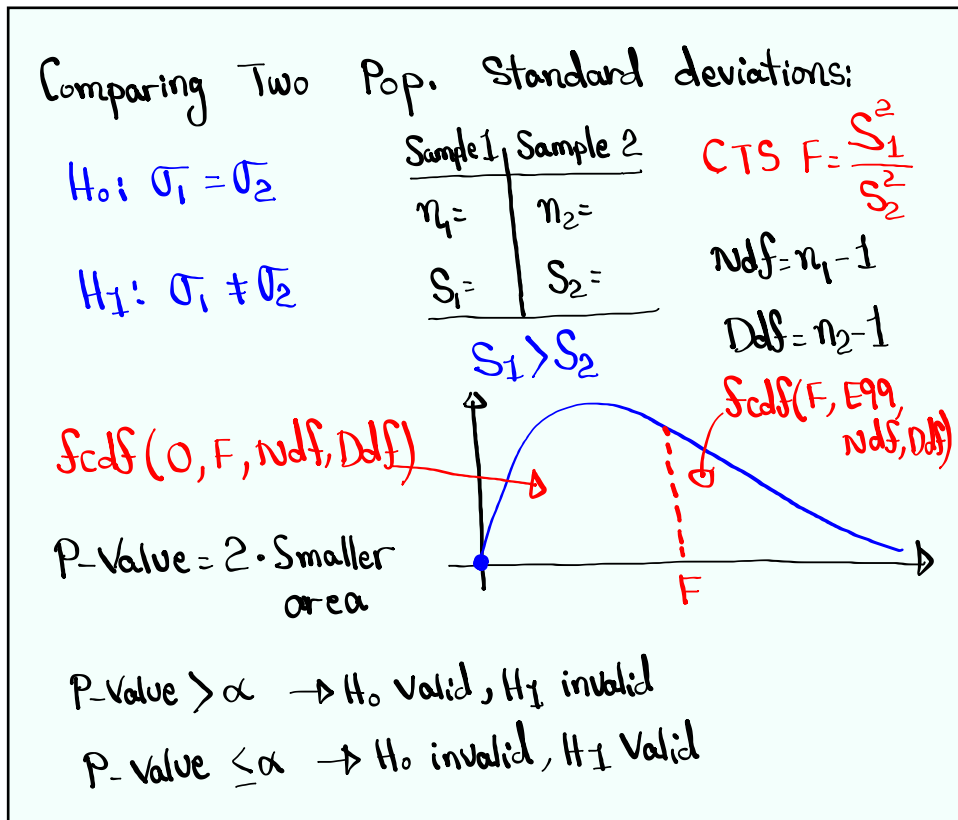 Comparing Two Pop. Standard deviations:
H₀: σ₁ = σ₂
H₁: σ₁ ≠ σ₂
Sample 1 Sample 2
n₁= n₂=
S₁= S₂=
S₁ > S₂
CTS F = S₁²/S₂²
Ndf = n₁ - 1
Ddf = n₂ - 1
fcdf(F, E99,
Ndf, Ddf)
fcdf(0, F, Ndf, Ddf)
F
P-Value = 2 · Smaller
area
P-Value > α → H₀ Valid, H₁ invalid
P-Value ≤ α → H₀ invalid, H₁ Valid